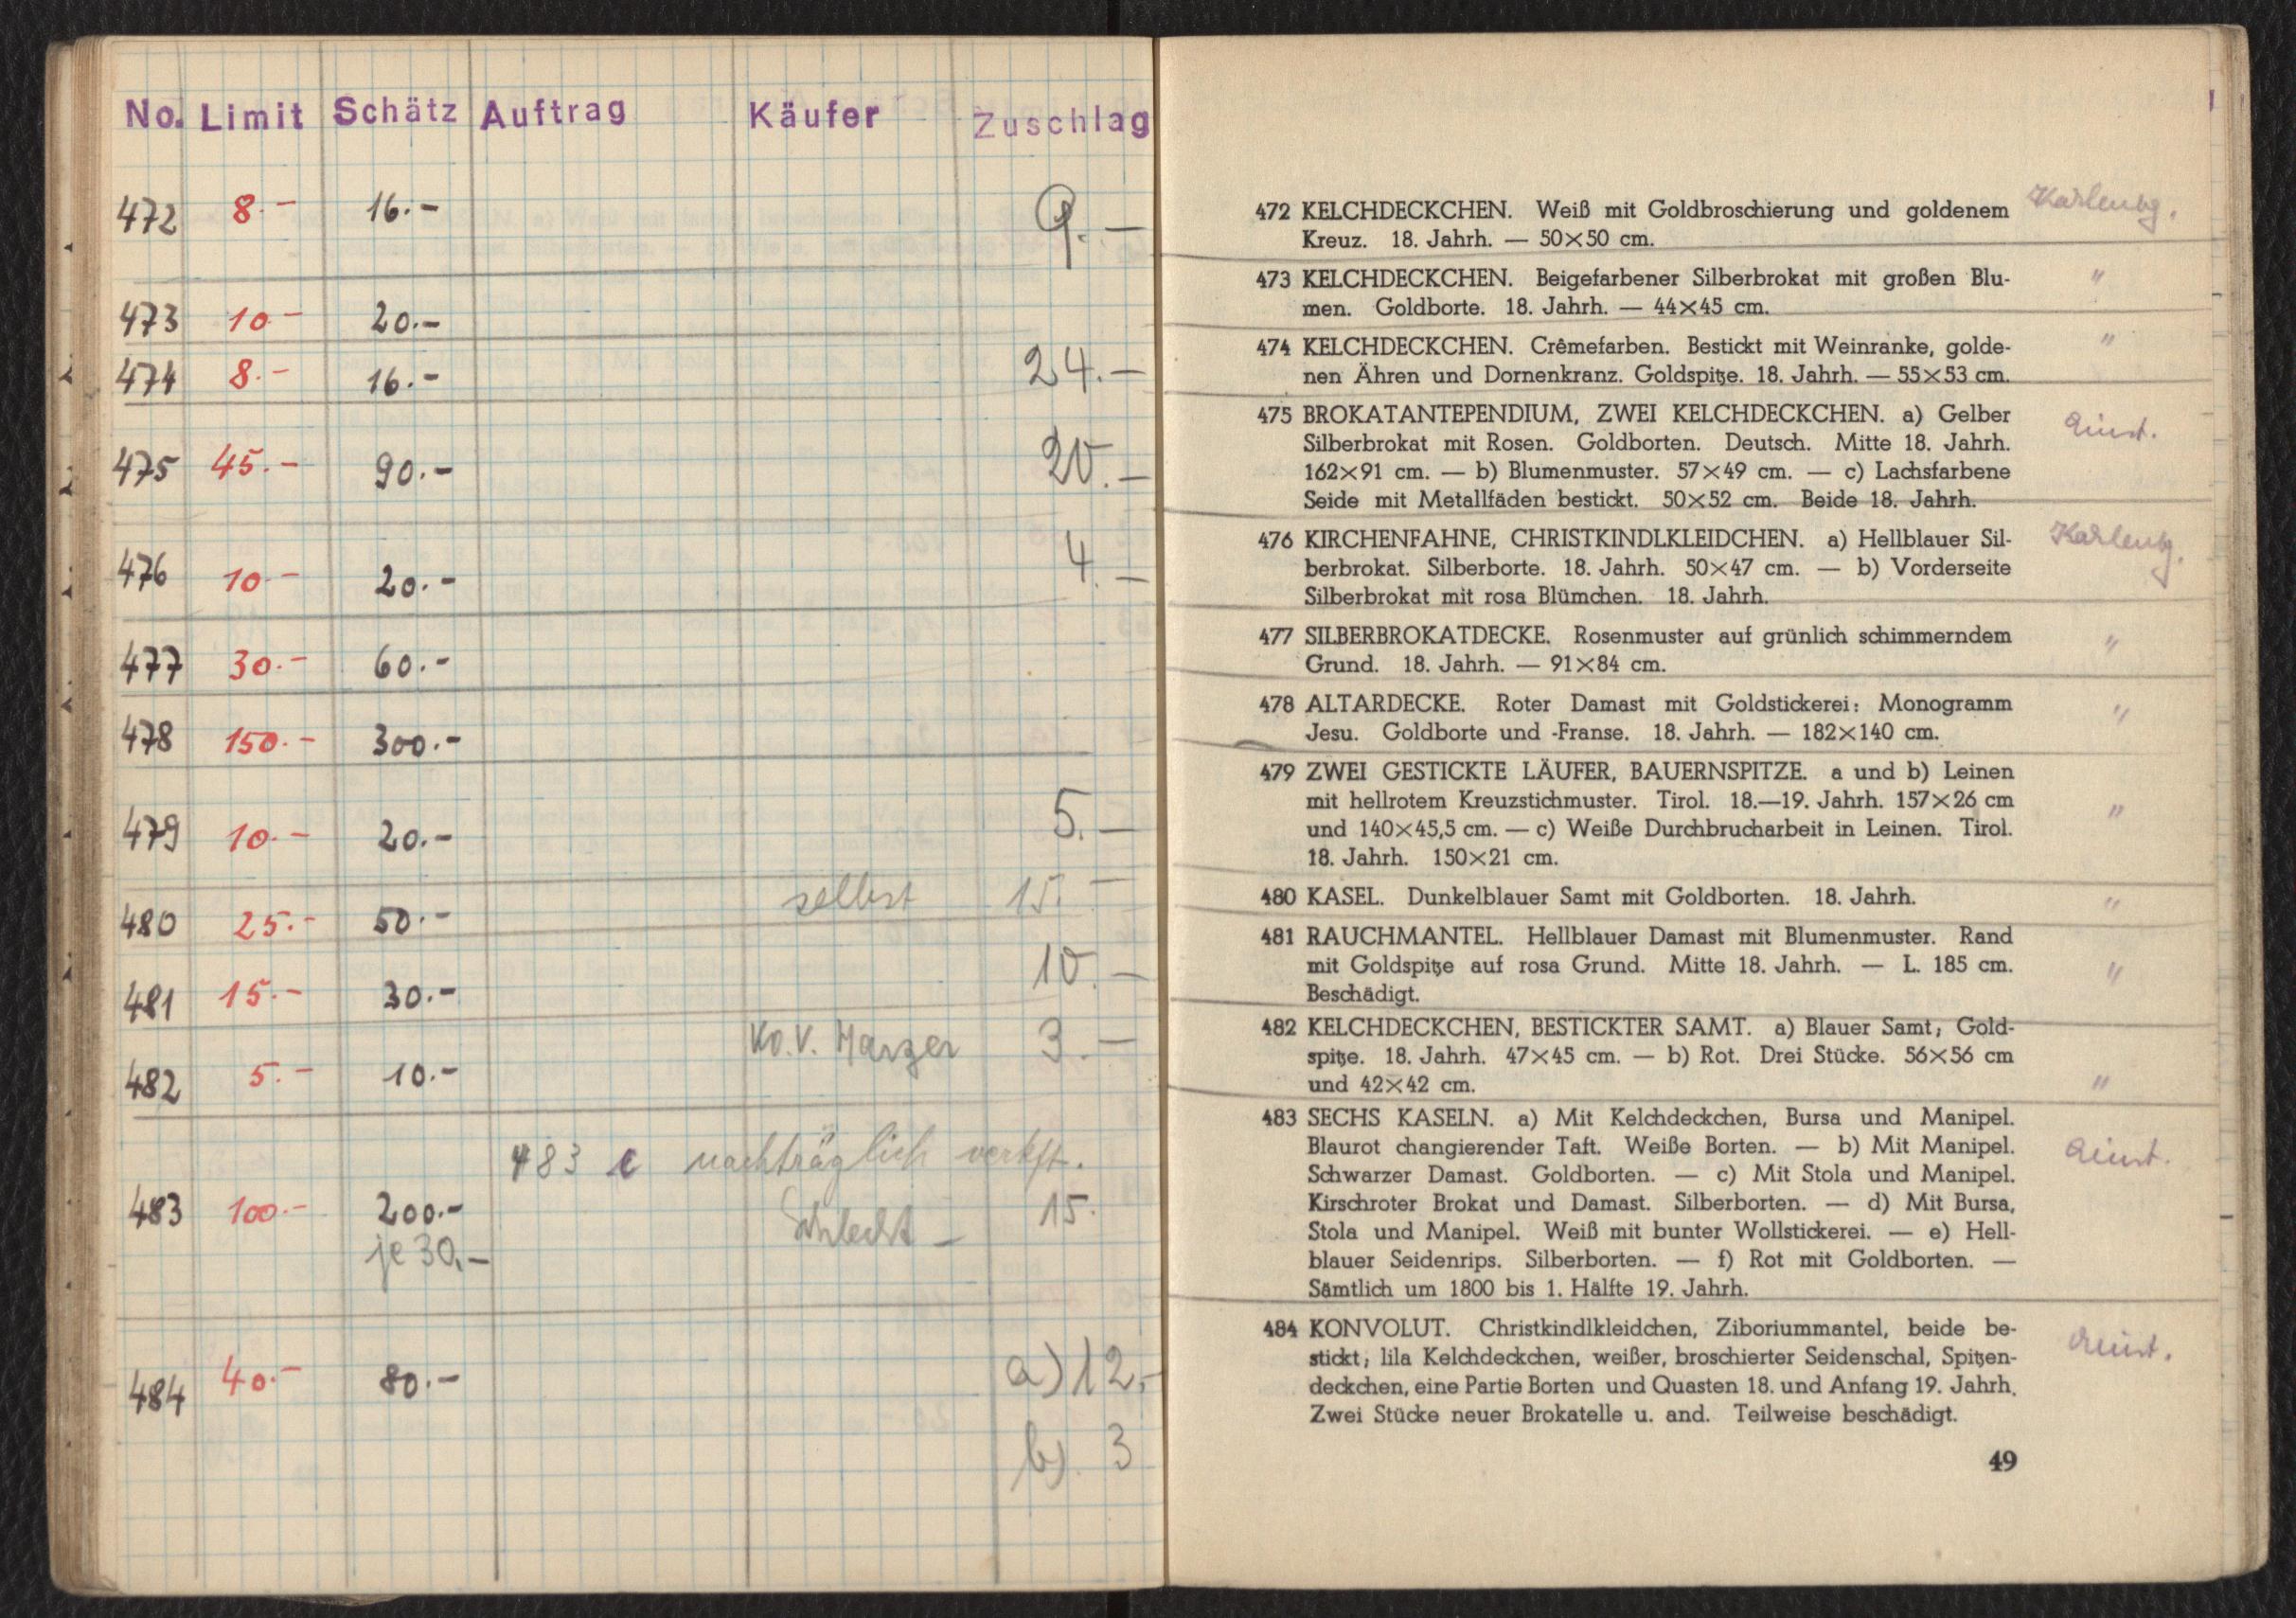 No. Limit Schätz Auftrag Käufer Zuschlag
472 8.- 16.- 9.-
473 10.- 20.-
474 8.- 16.- 24.-
475 45.- 90.- 20.-
476 10.- 20.- 4.-
477 30.- 60.-
478 150.- 300.-
479 10.- 20.- 5.-
480 25.- 50.- selbst 15.-
481 15.- 30.- 10.-
482 5.- 10.- 3.-
483 c nachträglich verkft.
483 100.- 200.- 15.
je 30.-
484 40.- 80.- a) 12.-
b) 3
472 KELCHDECKCHEN. Weiß mit Goldbroschierung und goldenem
Kreuz. 18. Jahrh. — 50×50 cm.
473 KELCHDECKCHEN. Beigefarbener Silberbrokat mit großen Blu-
men. Goldborte. 18. Jahrh. — 44×45 cm.
"
474 KELCHDECKCHEN. Crêmefarben. Bestickt mit Weinranke, golde-
nen Ähren und Dornenkranz. Goldspitze. 18. Jahrh. — 55×53 cm.
"
475 BROKATANTEPENDIUM, ZWEI KELCHDECKCHEN. a) Gelber
Silberbrokat mit Rosen. Goldborten. Deutsch. Mitte 18. Jahrh.
162×91 cm. — b) Blumenmuster. 57×49 cm. — c) Lachsfarbene
Seide mit Metallfäden bestickt. 50×52 cm. Beide 18. Jahrh.
476 KIRCHENFAHNE, CHRISTKINDLKLEIDCHEN. a) Hellblauer Sil-
berbrokat. Silberborte. 18. Jahrh. 50×47 cm. — b) Vorderseite
Silberbrokat mit rosa Blümchen. 18. Jahrh.
477 SILBERBROKATDECKE. Rosenmuster auf grünlich schimmerndem
Grund. 18. Jahrh. — 91×84 cm.
"
478 ALTARDECKE. Roter Damast mit Goldstickerei: Monogramm
Jesu. Goldborte und -Franse. 18. Jahrh. — 182×140 cm.
"
479 ZWEI GESTICKTE LÄUFER, BAUERNSPITZE. a und b) Leinen
mit hellrotem Kreuzstichmuster. Tirol. 18.—19. Jahrh. 157×26 cm
und 140×45,5 cm. — c) Weiße Durchbrucharbeit in Leinen. Tirol.
18. Jahrh. 150×21 cm.
"
480 KASEL. Dunkelblauer Samt mit Goldborten. 18. Jahrh.
"
481 RAUCHMANTEL. Hellblauer Damast mit Blumenmuster. Rand
mit Goldspitze auf rosa Grund. Mitte 18. Jahrh. — L. 185 cm.
Beschädigt.
"
482 KELCHDECKCHEN, BESTICKTER SAMT. a) Blauer Samt; Gold-
spitze. 18. Jahrh. 47×45 cm. — b) Rot. Drei Stücke. 56×56 cm
und 42×42 cm.
"
483 SECHS KASELN. a) Mit Kelchdeckchen, Bursa und Manipel.
Blaurot changierender Taft. Weiße Borten. — b) Mit Manipel.
Schwarzer Damast. Goldborten. — c) Mit Stola und Manipel.
Kirschroter Brokat und Damast. Silberborten. — d) Mit Bursa,
Stola und Manipel. Weiß mit bunter Wollstickerei. — e) Hell-
blauer Seidenrips. Silberborten. — f) Rot mit Goldborten. —
Sämtlich um 1800 bis 1. Hälfte 19. Jahrh.
484 KONVOLUT. Christkindlkleidchen, Ziboriummantel, beide be-
stickt; lila Kelchdeckchen, weißer, broschierter Seidenschal, Spitzen-
deckchen, eine Partie Borten und Quasten 18. und Anfang 19. Jahrh.
Zwei Stücke neuer Brokatelle u. and. Teilweise beschädigt.
49